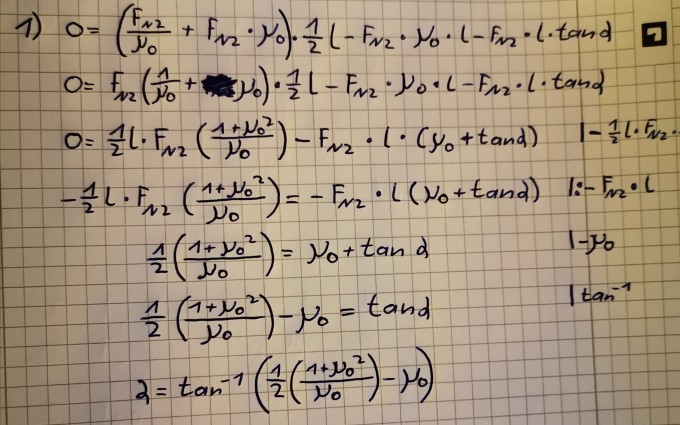 1) 0 = (F_N2/μ₀ + F_N2 · μ₀) · 1/2 l - F_N2 · μ₀ · l - F_N2 · l · tan α
0 = F_N2 (1/μ₀ + μ₀) · 1/2 l - F_N2 · μ₀ · l - F_N2 · l · tan α
0 = 1/2 l · F_N2 ((1+μ₀²)/μ₀) - F_N2 · l · (μ₀ + tan α) | - 1/2 l · F_N2 ·
- 1/2 l · F_N2 ((1+μ₀²)/μ₀) = - F_N2 · l (μ₀ + tan α) | : - F_N2 · l
1/2 ((1+μ₀²)/μ₀) = μ₀ + tan α | - μ₀
1/2 ((1+μ₀²)/μ₀) - μ₀ = tan α | tan⁻¹
α = tan⁻¹ (1/2 ((1+μ₀²)/μ₀) - μ₀)